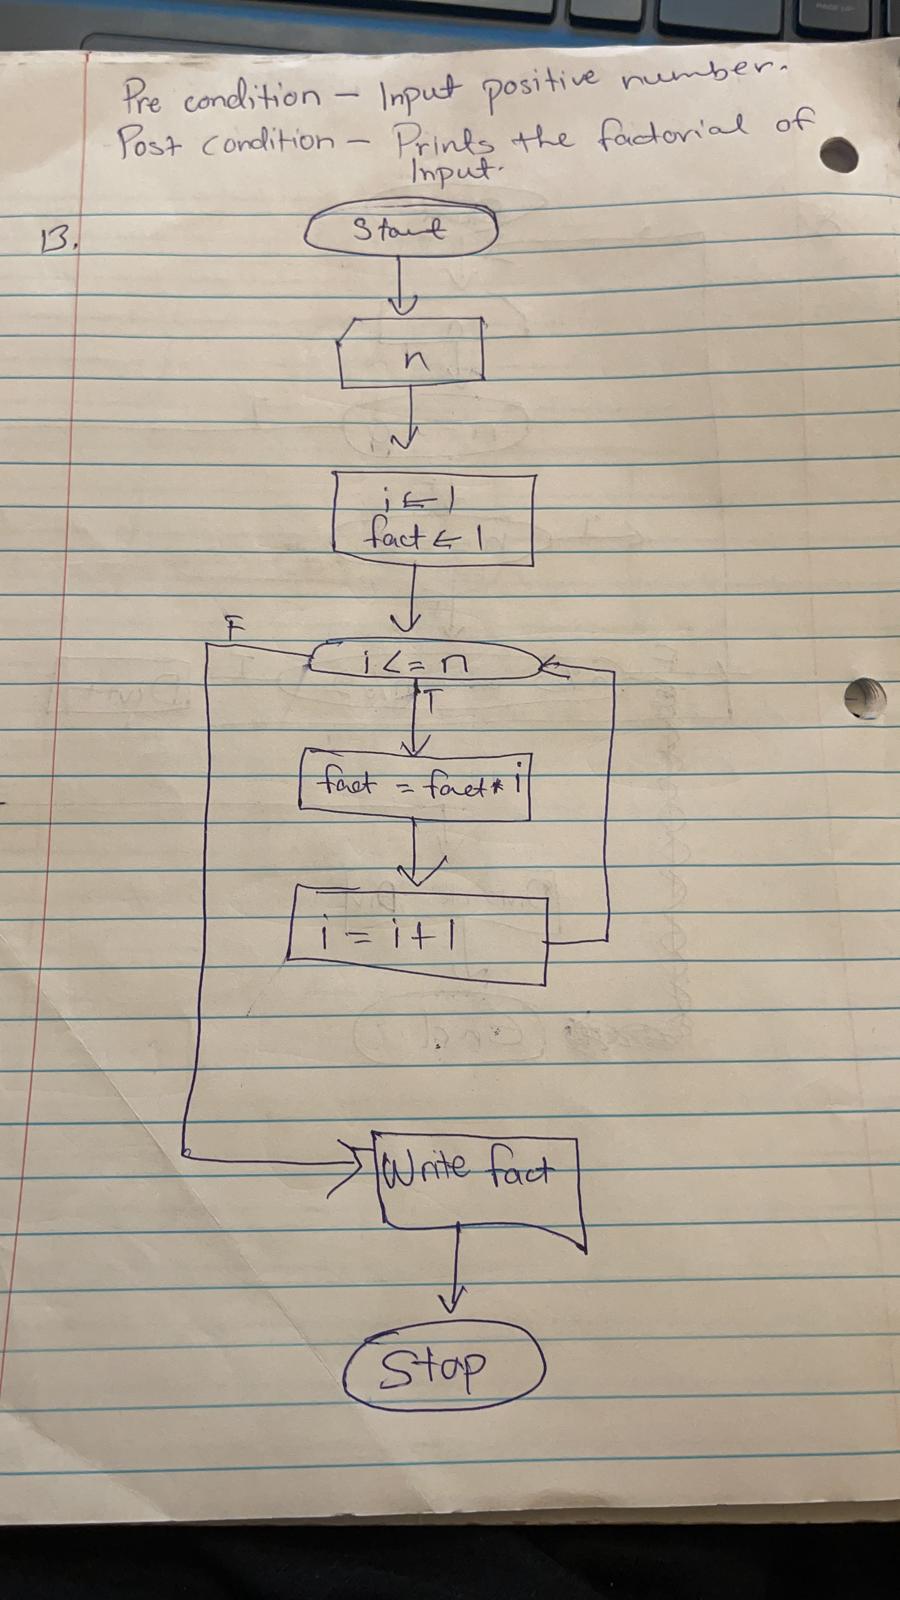 Pre condition – Input positive number.
Post condition – Prints the factorial of
Input.
13.
Start
n
i ← 1
fact ← 1
F
i <= n
T
fact = fact * i
i = i + 1
Write fact
Stop